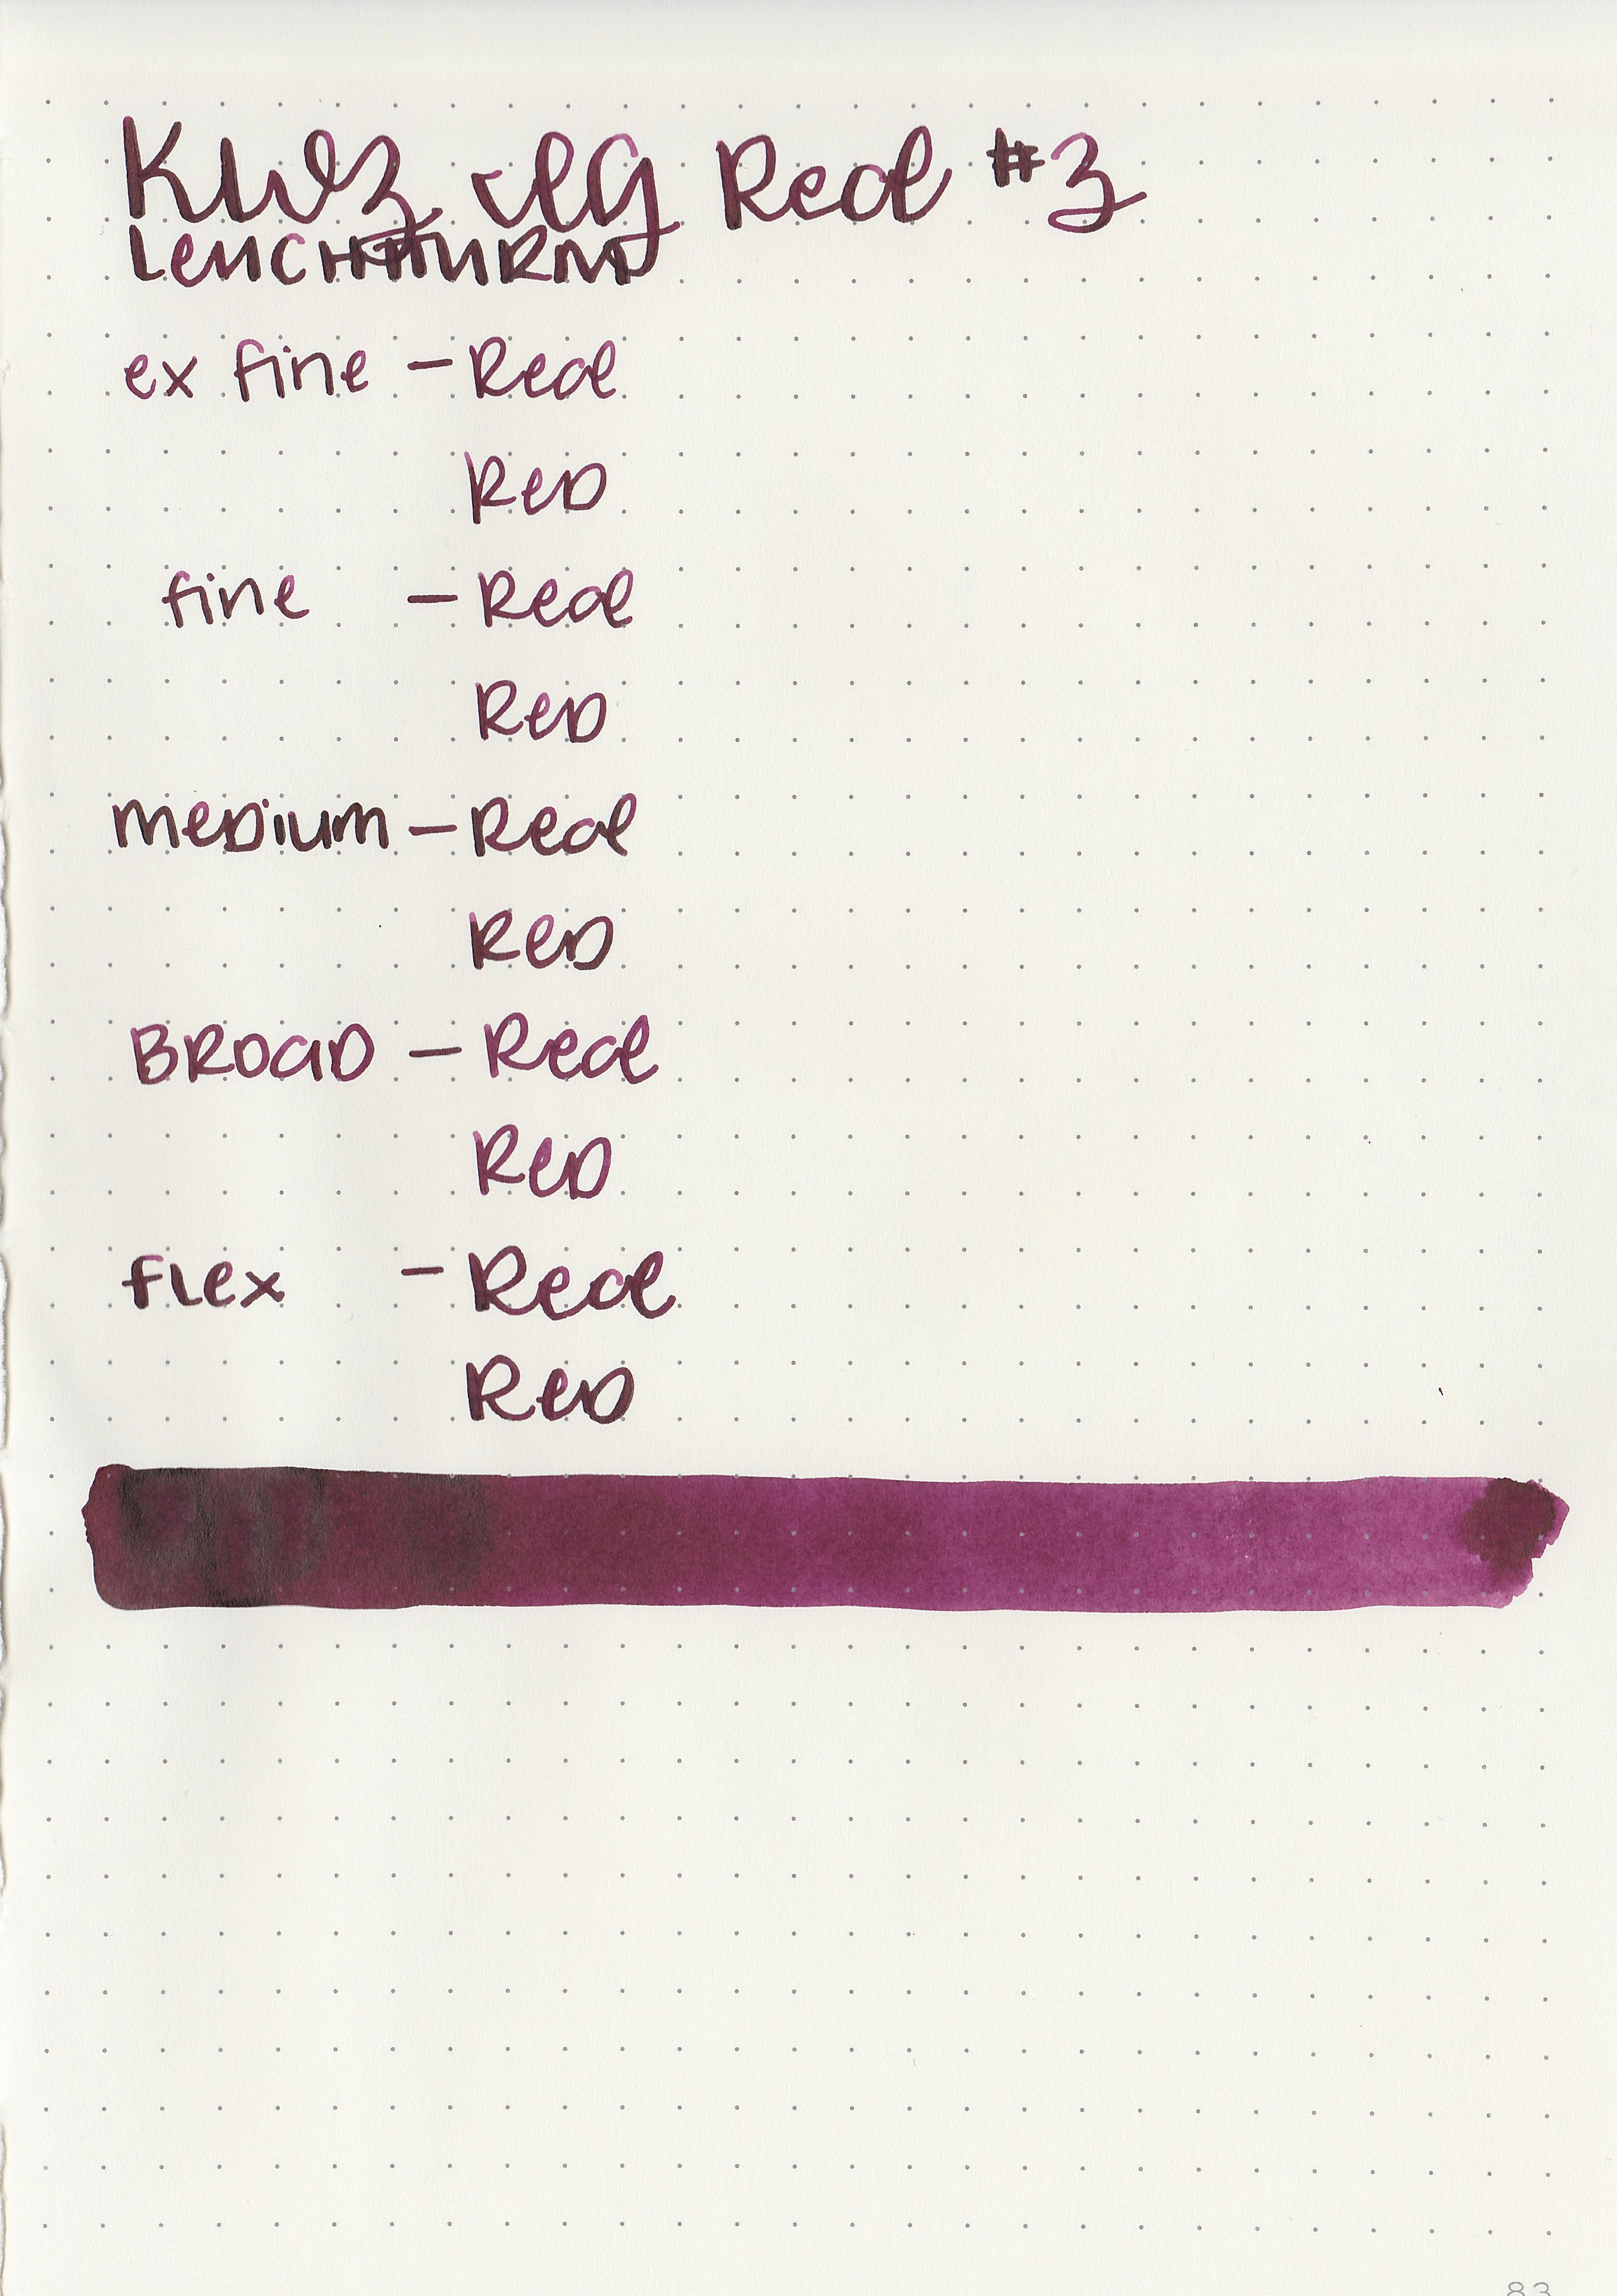 KWZ IG Red #3
LEUCHTTURM
ex fine - Red
Red
fine - Red
Red
medium - Red
Red
Broad - Red
Red
flex - Red
Red
83